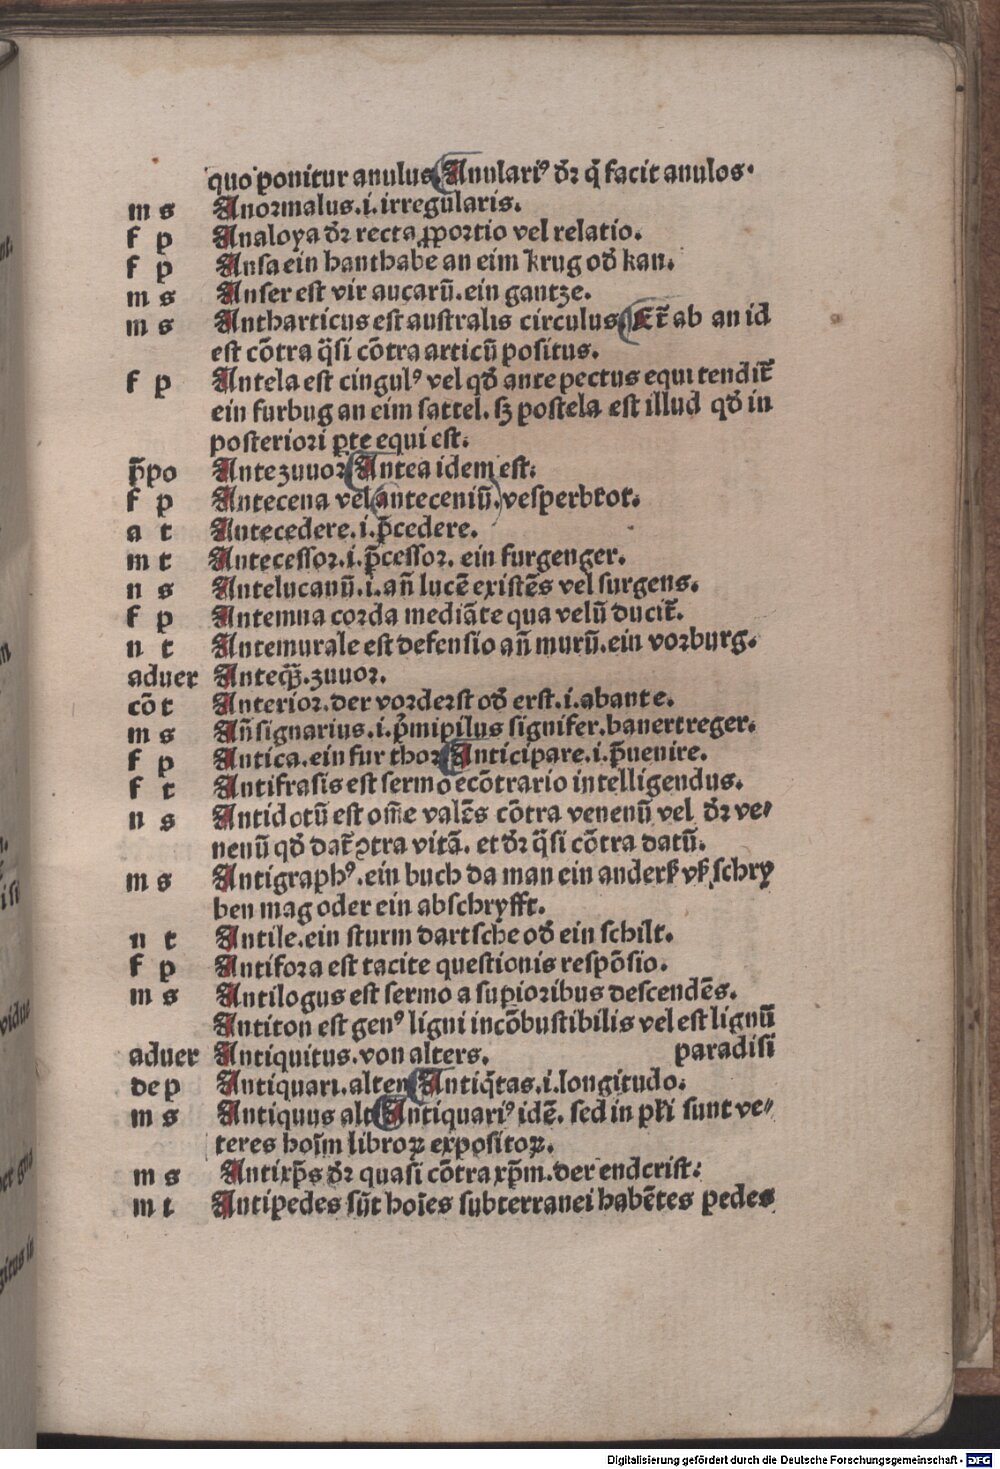 quo ponitur anulus. Anulariꝰ dr̄ q̄ facit anulos.
m s Anormalus.i.irregularis.
f p Analoya dr̄ recta ꝓportio vel relatio.
f p Ansa ein hanthabe an eim krug od̄ kan.
m s Anser est vir aucarū.ein gantze.
m s Antharticus est australis circulus. Et̄ ab an id
est cōtra q̄si cōtra articū positus.
f p Antela est cingulꝰ vel qd̄ ante pectus equi tendit̄
ein furbug an eim sattel. sꝫ postela est illud qd̄ in
posteriori ꝑte equi est.
p̄po Ante zuuor Antea idem est.
f p Antecena vel anteceniū.vesperbrot.
a t Antecedere.i.p̄cedere.
m t Antecessor.i.p̄cessor. ein furgenger.
n s Antelucanū.i.an̄ lucē existēs vel surgens.
f p Antemna corda mediāte qua velū ducit̄.
n t Antemurale est defensio an̄ murū.ein vorburg.
aduer Anteqꝫ̄.zuuor.
cō t Anterior.der vorderst od̄ erst.i.abante.
m s An̄signarius.i.p̄mipilus signifer.banertreger.
f p Antica.ein fur thor Anticipare.i.p̄uenire.
f t Antifrasis est sermo ecōtrario intelligendus.
n s Antidotū est om̄e valēs cōtra venenū vel dr̄ ve⸗
nenū qd̄ dat̄ ꝯtra vitā. et dr̄ q̄si cōtra datū.
m s Antigraphꝰ.ein buch da man ein anderß vß schry
ben mag oder ein abschryfft.
n t Antile.ein sturm dartsche od̄ ein schilt.
f p Antifora est tacite questionis respōsio.
m s Antilogus est sermo a supioribus descendēs.
Antiton est genꝰ ligni incōbustibilis vel est lignū
aduer Antiquitus.von alters. paradisi
de p Antiquari.alten Antiq̄tas.i.longitudo.
m s Antiquus alt Antiquariꝰ idē. sed in pl̄i sunt ve⸗
teres hoīm libroꝝ expositoꝝ.
m s Antixp̄s dr̄ quasi cōtra xp̄m.der endcrist.
m t Antipedes sūt hoīes subterranei habētes pedes
Digitalisierung gefördert durch die Deutsche Forschungsgemeinschaft - DFG